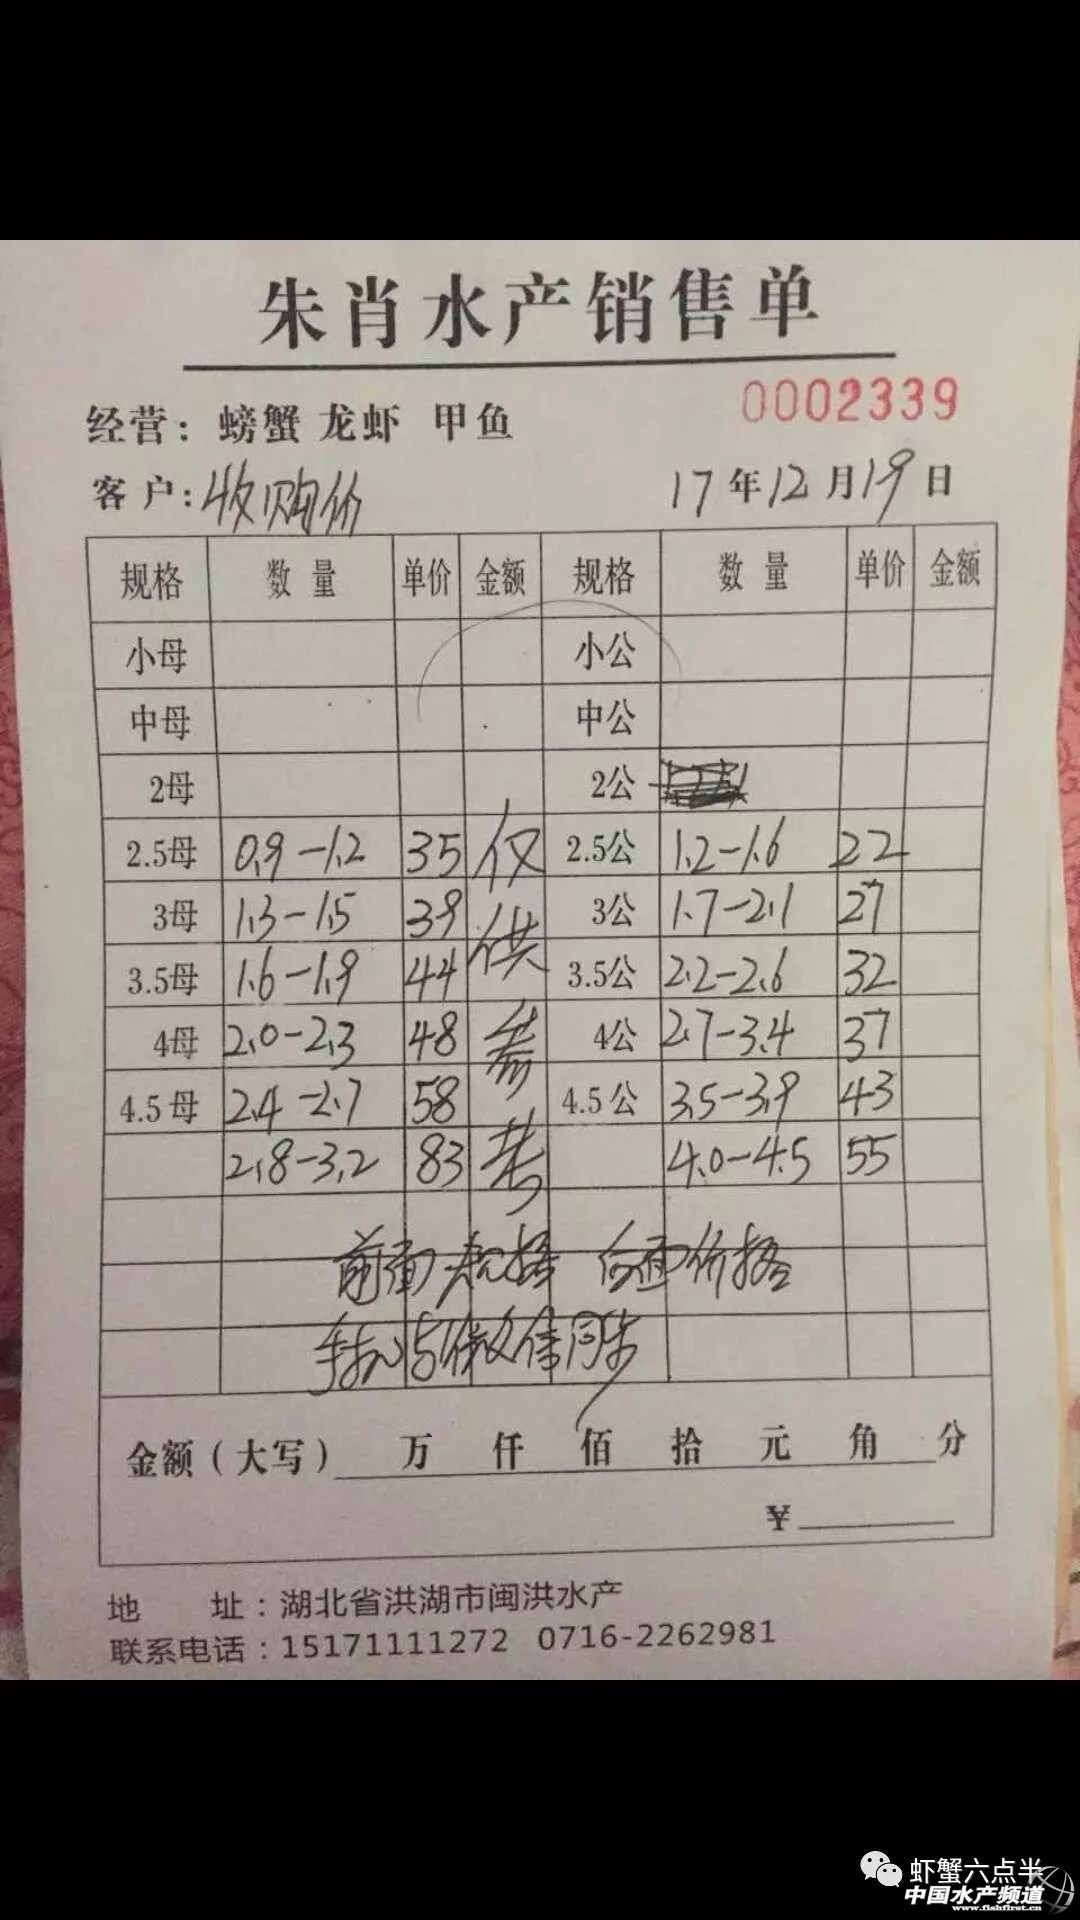 朱肖水产销售单
0002339
经营：螃蟹 龙虾 甲鱼
客户：收购价 17年12月19日
规格 数量 单价 金额 规格 数量 单价 金额
小母 小公
中母 中公
2母 2公
2.5母 0.9-1.2 35 仅 2.5公 1.2-1.6 22
3母 1.3-1.5 39 供 3公 1.7-2.1 27
3.5母 1.6-1.9 44 3.5公 2.2-2.6 32
4母 2.0-2.3 48 参 4公 2.7-3.4 37
4.5母 2.4-2.7 58 考 4.5公 3.5-3.9 43
2.8-3.2 83 4.0-4.5 55
前面规格 后面价格
手机与微信同步
金额（大写） 万 仟 佰 拾 元 角 分
¥
地 址：湖北省洪湖市闽洪水产
联系电话：15171111272 0716-2262981
虾蟹六点半
中国水产频道
www.fishfirst.cn